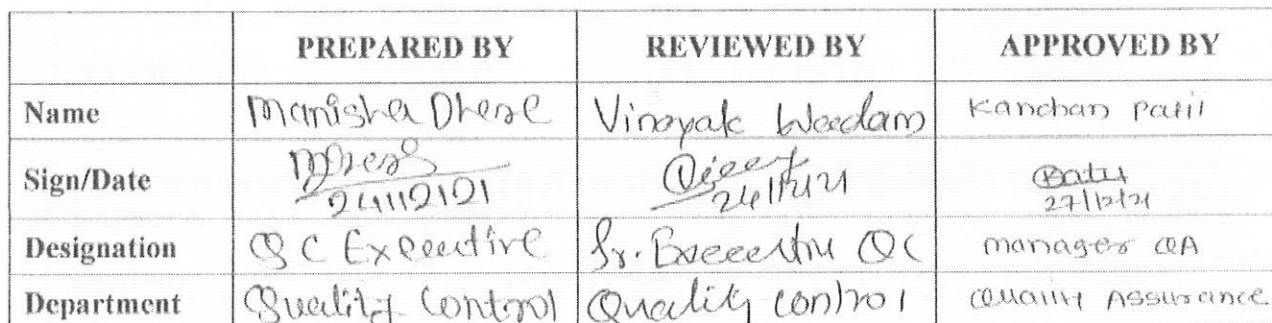 PREPARED BY REVIEWED BY APPROVED BY
Name Manisha Dhere Vinayak Waadam Kanchan Patil
Sign/Date 24/12/21 24/12/21 27/12/21
Designation QC Executive Sr. Executive QC manager QA
Department Quality Control Quality control Quality Assurance